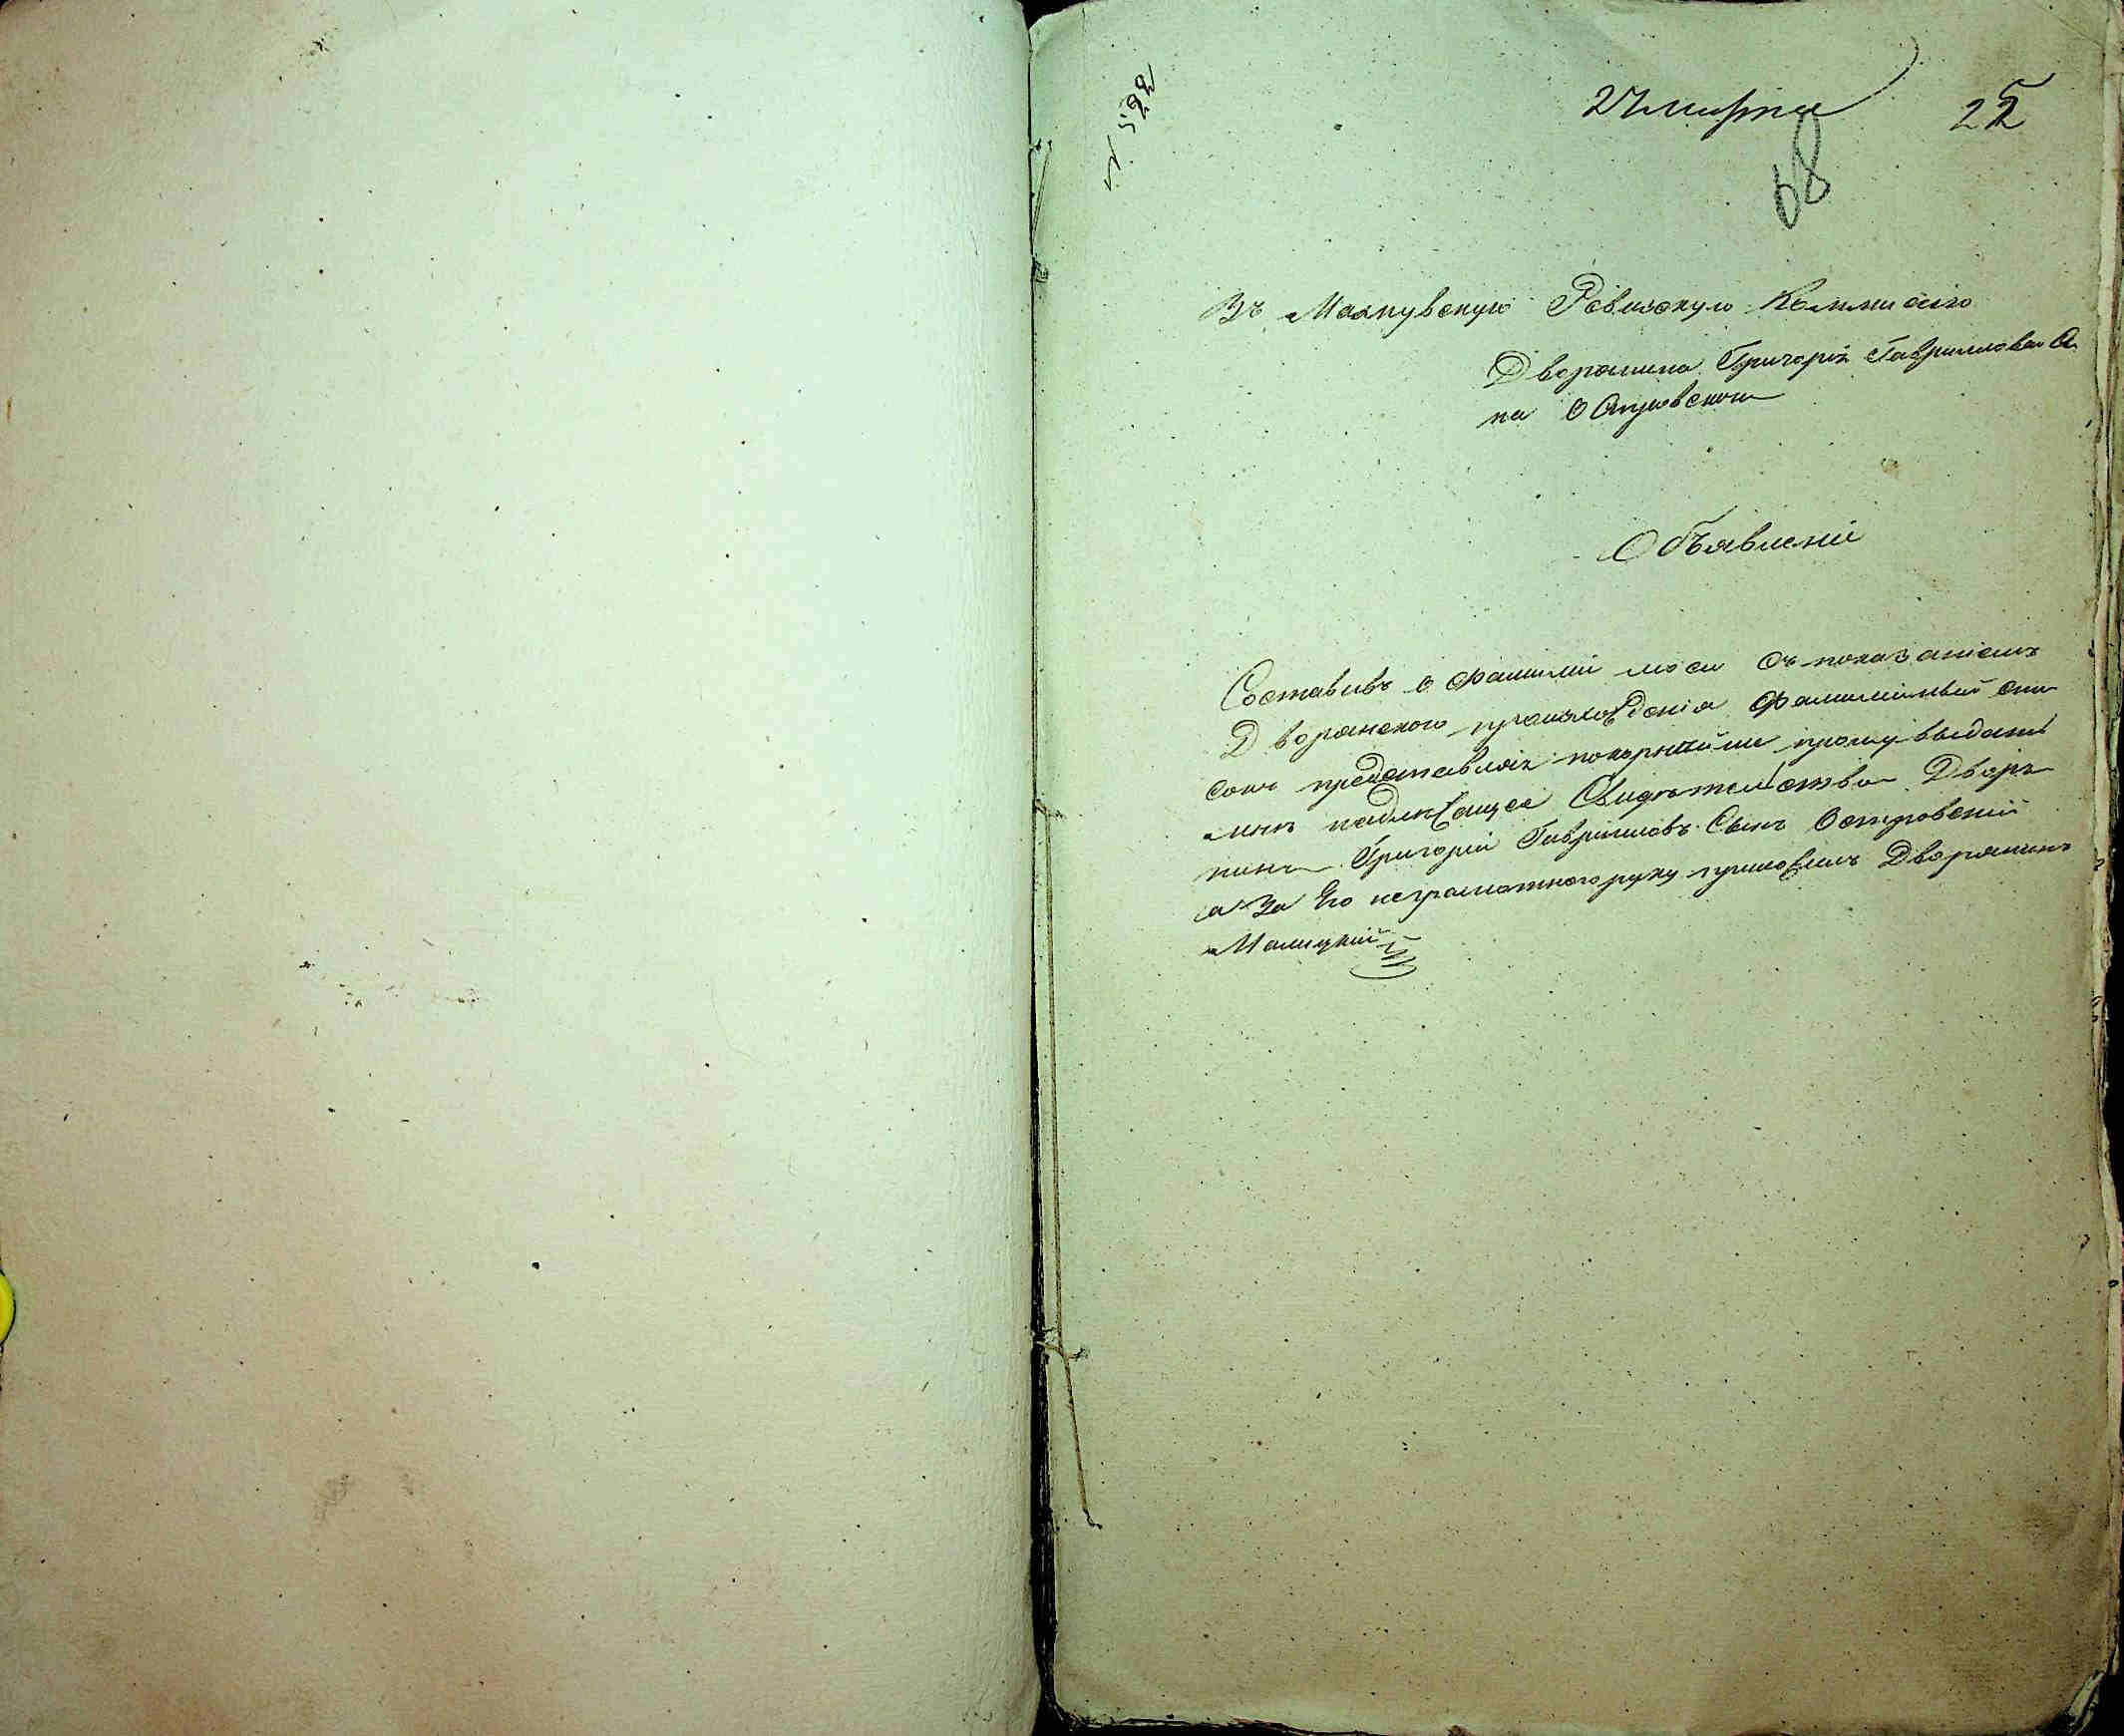 № 522
27 марта
22
68
Въ Махнувскую Ревизскую Коммисію
Дворянина Григорія Гаврилова Сы
на Островскаго
Объявленіе
Составивъ о Фамиліи моей съ показаніемъ
Дворянского происхожденія Фамилійный спи
сокъ представляя покорнѣйше прошу выдать
мнѣ надлежащее Свидѣтельство Дворя
нинъ Григорій Гавриловъ Сынъ Островскій
а За Его неграмотного руку приложилъ Дворянинъ
Малицкій